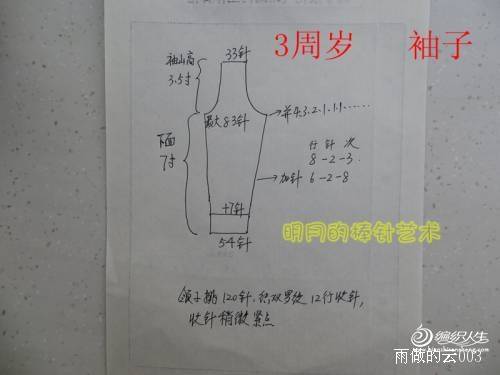 3周岁 袖子
33针
袖山高
3.5寸
最大83针
并4.3.2.1.1.1......
下面
7寸
行 针 次
8-2-3.
加针 6-2-8
+7针
54针
明月的棒针艺术
领子挑120针.织双罗纹12行收针,
收针稍微紧点
编织人生
雨做的云003